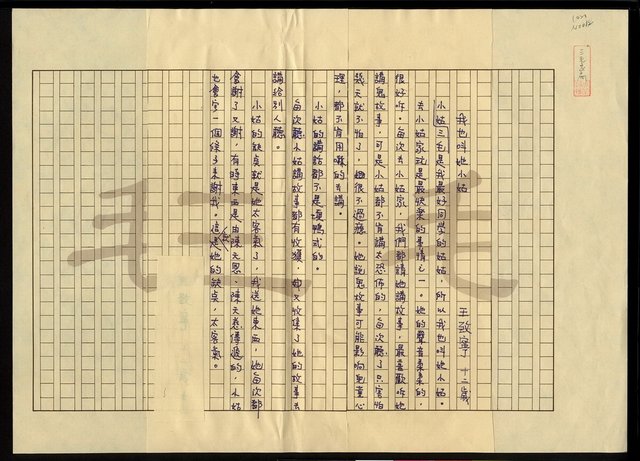 我也叫她小姑
王致寧 十二歲
小姑三毛是我最好同學的姑姑，所以我也叫她小姑。
去小姑家就是最快樂的事情之一。她的聲音柔柔的，
很好听。每次去小姑家，我們都請她講故事，最喜歡听她
講鬼故事，可是小姑都不肯講太恐佈的，每次聽了只害怕
幾天就不怕了，她很不過癮。她說鬼故事可能影响兒童心
理，都不肯用嚇的去講。
小姑的講話都不是填鴨式的。
每次聽小姑講故事都有收獲，我又收集了她的故事去
講給別人聽。
小姑的缺點就是她太客氣了，我送她東西，她每次都
會謝了又謝，有時東西是由陳天恩、陳天慈傳遞的，小姑
也會寫一個條子來謝我。這是她的缺點，太客氣。
三毛